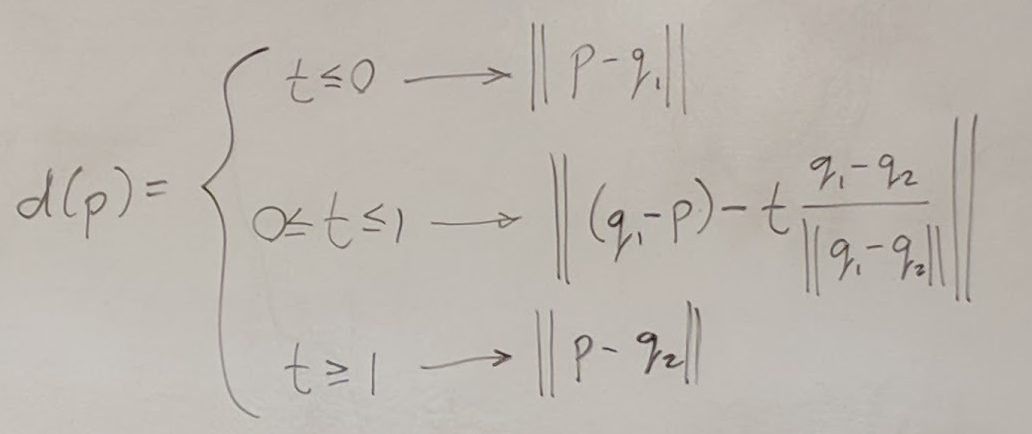 t ≤ 0 → || p - q₁ ||
d(p) = { 0 ≤ t ≤ 1 → || (q₁ - p) - t (q₁ - q₂) / ||q₁ - q₂|| ||
t ≥ 1 → || p - q₂ ||